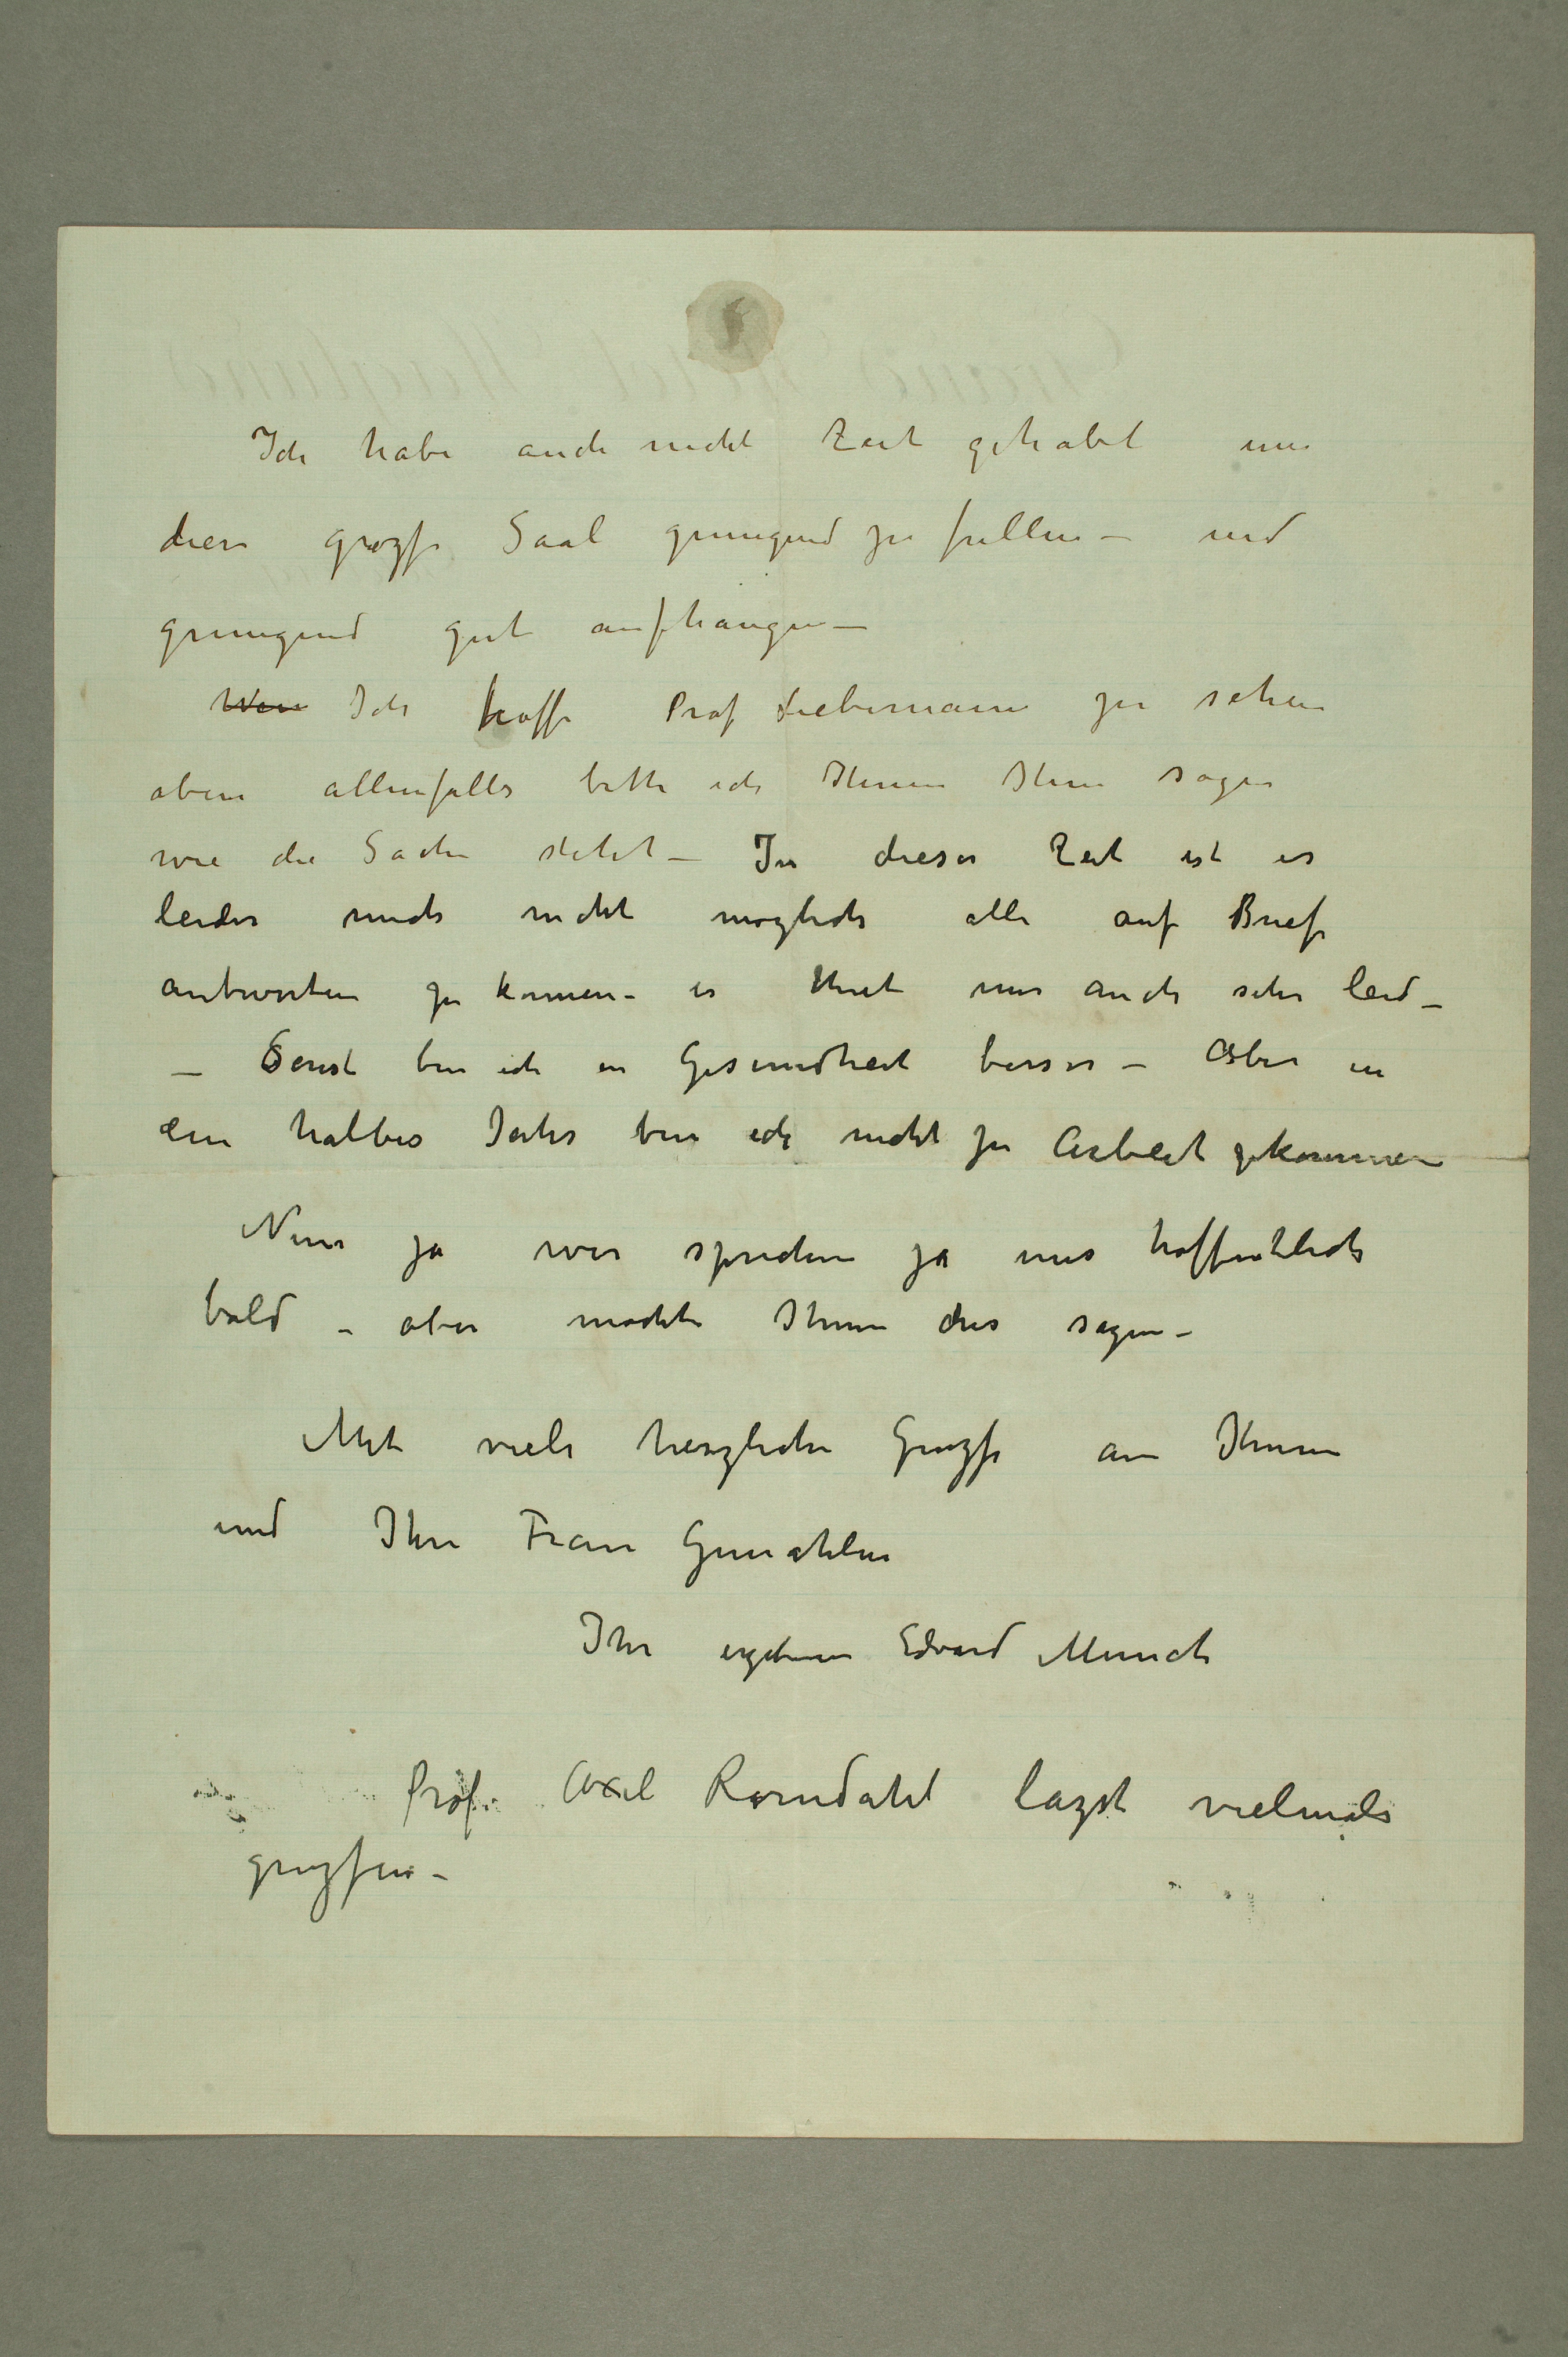 Ich habe auch nicht Zeit gehabt um
diese grozse Saal genugend zu fullen – und
genugend gut aufhangen –
Wen Ich hoffe Prof Liebermann zu sehen
aber allenfalls bitte ich Ihnen Ihm sagen
wie die Sache steht – In dieser Zeit ist es
leider mich nicht moglich alle auf Briefe
antworten zu konnen – es thut mir auch sehr leid –
– Sonst bin ich in Gesundheit besser – Aber in
ein halbes Jahr bin ich nicht zu Arbeit gekommen
Nun ja wir sprechen ja uns hoffentlich
bald – aber mochte Ihnen dies sagen –
Mit viele herzliche Gruzse an Ihnen
und Ihre Frau Gemahlin
Ihr ergebener Edvard Munch
Prof. Axel Romdahl lazst vielmals
gruzsen –